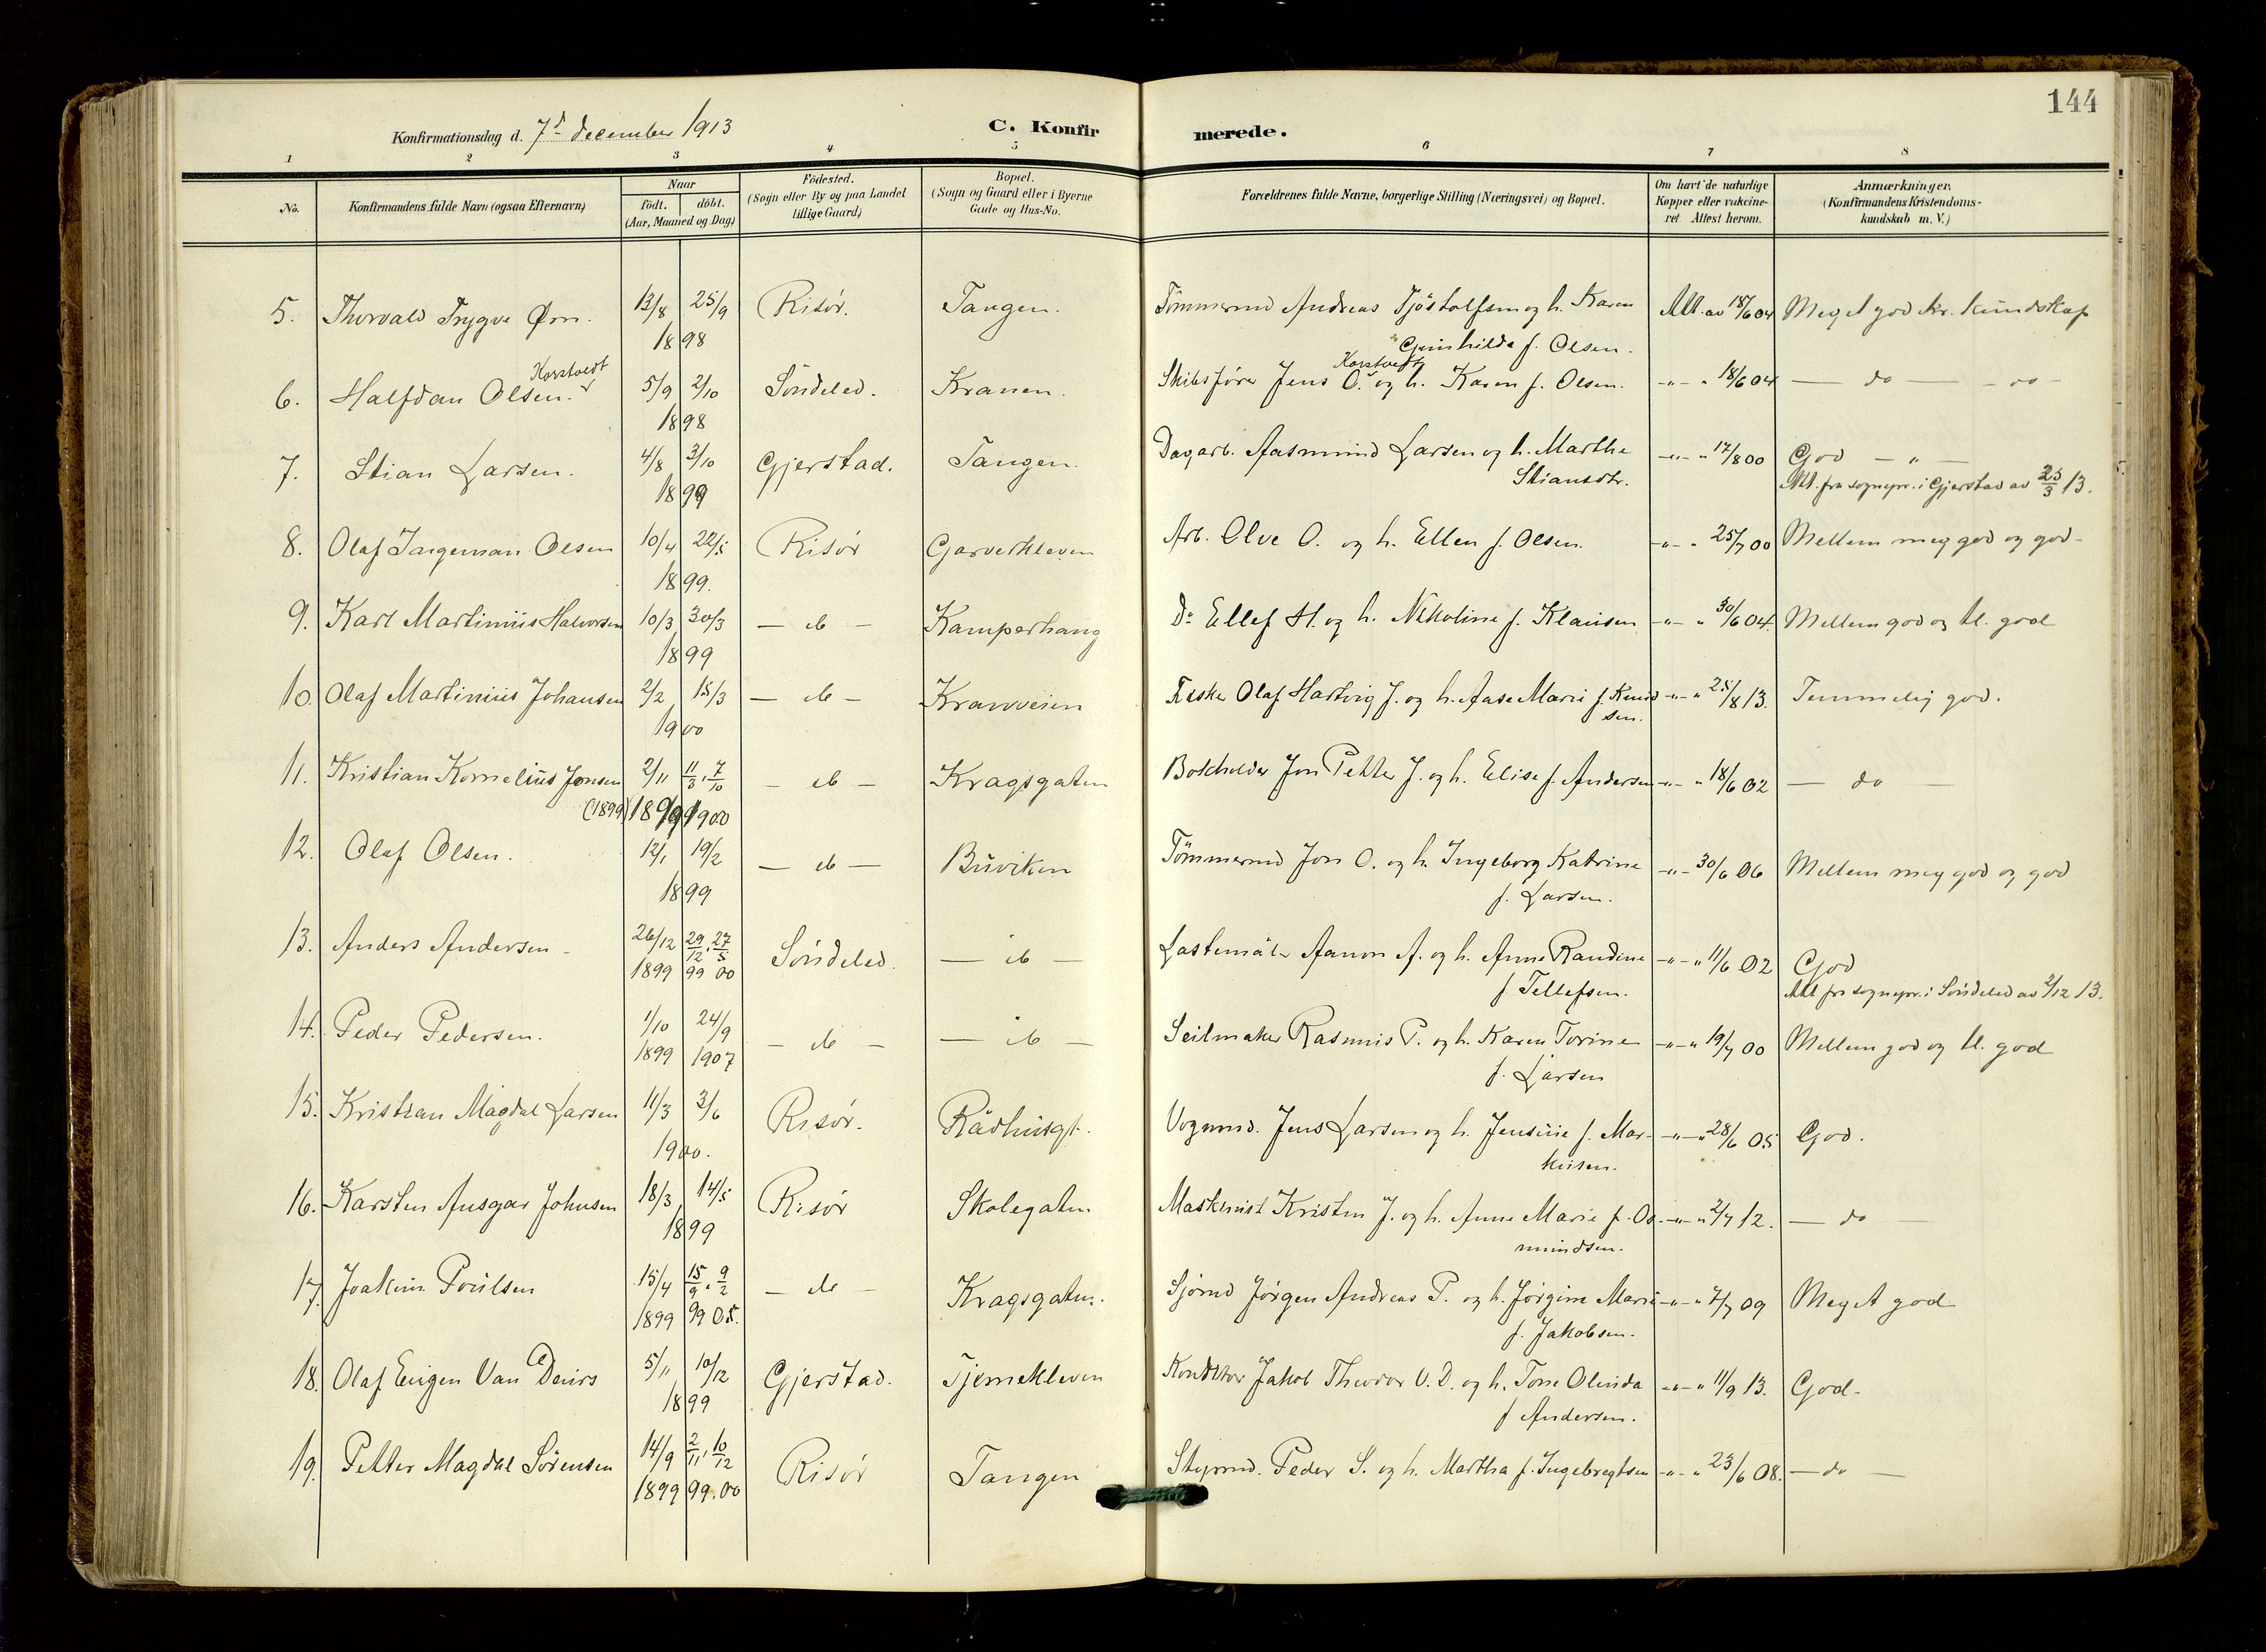 144
Konfirmationsdag d. 7d december 1913
C. Konfir merede.
1 2 3 4 5 6 7 8
No.
Konfirmandens fulde Navn (ogsaa Efternavn)
Naar
födt. döbt.
(Aar, Maaned og Dag)
Födested.
(Sogn eller By og paa Landet
tillige Gaard)
Bopæl.
(Sogn og Gaard eller i Byerne
Gade og Hus-No.
Forældrenes fulde Navne, borgerlige Stilling (Næringsvei) og Bopæl.
Om havt de naturlige
Kopper eller vakcine-
ret. Attest herom.
Anmærkninger.
(Konfirmandens Kristendoms-
kundskab m. V.)
5. Thorvald Trygve Örn. 13/8 25/9 Risör. Tangen. Tömmermd Andreas Tjöstolfsen og h. Karen Att. av 18/6 04 Meget god kr. kundskap
1898 Gunhilda f. Olsen.
Korstvedt Korstvedt
6. Halfdan Olsen. 5/9 2/10 Söndeled. Kranen. Skibsförer Jens O. og h. Karen f. Olsen. -"- " 18/6 04 — do — - do -
1898
7. Stian Larsen. 4/8 3/10 Gjerstad. Tangen. Dagarb. Aasmund Larsen og h. Marthe -"- " 17/8 00 God — " —
1899 Stiansdtr. Att. fra sognepr. i Gjerstad av 25/3 13.
8. Olaf Ingeman Olsen 10/4 22/5 Risör Garverkleven Arb. Olve O. og h. Ellen f. Olsen. -"- " 25/7 00 Mellem meg god og god-
1899.
9. Karl Martinius Halvorsen 10/3 30/3 — do — Kamperhaug Do Ellef H. og h. Nikoline f. Klausen -"- " 30/6 04. Mellem god og tl. god
1899
10. Olaf Martinius Johansen 2/2 15/3 — do — Kranveien Fisker Olaf Hartvig J. og h. Aase Marie f. Knud -"- " 25/8 13. Temmelig god.
1900 sen.
11. Kristian Kornelius Jonsen 2/11 11/3, 7/10 — do — Kragsgaten Bokholder Jon Petter J. og h. Elise f. Andersen -"- " 18/6 02 — do —
(1899) 1899 1900
12. Olaf Olsen. 12/1 19/2 — do — Buviken Tömmermd Jon O. og h. Ingeborg Katrine -"- 30/6 06 Mellem meg god og god
1899 f. Larsen.
13. Anders Andersen - 26/12 29/12, 27/5 Söndeled. — do — Lastemåler Aanon A. og h. Anne Randine -"- " 11/6 02 God
1899 99 00 f. Tellefsen. Att fra sognepr. i Söndeled av 2/12 13.
14. Peder Pedersen. 1/10 24/9 — do — — do — Seilmaker Rasmus P. og h. Karen Torine -"- " 19/7 00 Mellem god og tl. god
1899 1907 f. Larsen
15. Kristian Magdal Larsen 11/3 3/6 Risör. Rådhusgt. Vognmd. Jens Larsen og h. Jensine f. Mar- -"- " 28/6 05 God.
1900. kusen.
16. Karsten Ansgar Johnsen 18/3 14/5 Risör Skolegaten Maskinist Kristen J. og h. Anne Marie f. Os- -"- " 2/7 12. — do —
1899 mundsen.
17. Joakim Poulsen 15/4 15/9, 9/2 — do — Kragsgaten. Sjömd Jörgen Andreas P. og h. Jörgine Marie -"- " 7/7 09 Meget god
1899 99 05. f. Jakobsen.
18. Olaf Eugen Van Deurs 5/11 10/12 Gjerstad. Tjernekleven Konditor Jakob Theodor V. D. og h. Tone Olinda -"- " 11/9 13. God.
1899 f Andersen.
19. Petter Magdal Sörensen 14/9 2/11, 10/12 Risör Tangen Styrmd. Peder S. og h. Martha f. Ingebregtsen -"- " 23/6 08. — do —
1899 99. 00